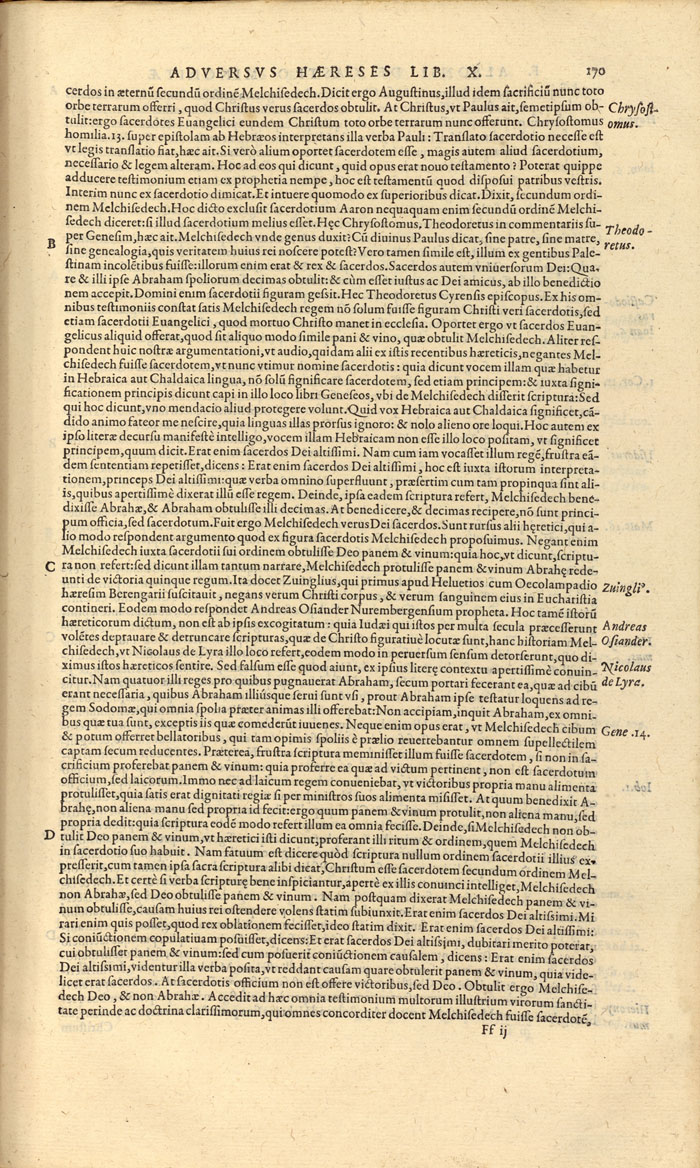 ADVERSVS HÆRESES LIB. X. 170
cerdos in æternũ secundũ ordinẽ Melchisedech. Dicit ergo Augustinus, illud idem sacrificiũ nunc toto
orbe terrarum offerri, quod Christus verus sacerdos obtulit. At Christus, vt Paulus ait, semetipsum ob-
tulit: ergo sacerdotes Euangelici eundem Christum toto orbe terrarum nunc offerunt. Chrysostomus
homilia. 13. super epistolam ab Hebræos interpretans illa verba Pauli: Translato sacerdotio necesse est
vt legis translatio fiat, hæc ait. Si verò alium oportet sacerdotem esse, magis autem aliud sacerdotium,
necessario & legem alteram. Hoc ad eos qui dicunt, quid opus erat nouo testamento? Poterat quippe
adducere testimonium etiam ex prophetia nempe, hoc est testamentũ quod disposui patribus vestris.
Interim nunc ex sacerdotio dimicat. Et intuere quomodo ex superioribus dicat. Dixit, secundum ordi-
nem Melchisedech. Hoc dicto exclusit sacerdotium Aaron nequaquam enim secundũ ordinẽ Melchi-
sedech diceret: si illud sacerdotium melius esset. Hęc Chrysostomus, Theodoretus in commentariis su-
per Genesim, hæc ait. Melchisedech vnde genus duxit? Cũ diuinus Paulus dicat, sine patre, sine matre,
sine genealogia, quis veritatem huius rei noscere potest? Vero tamen simile est, illum ex gentibus Pale-
stinam incolẽtibus fuisse: illorum enim erat & rex & sacerdos. Sacerdos autem vniuersorum Dei: Qua-
re & illi ipse Abraham spoliorum decimas obtulit: & cùm esset iustus ac Dei amicus, ab illo benedictio
nem accepit. Domini enim sacerdotii figuram gessit. Hec Theodoretus Cyrensis episcopus. Ex his om-
nibus testimoniis constat satis Melchisedech regem nõ solum fuisse figuram Christi veri sacerdotis, sed
etiam sacerdotii Euangelici, quod mortuo Christo manet in ecclesia. Oportet ergo vt sacerdos Euan-
gelicus aliquid offerat, quod sit aliquo modo simile pani & vino, quæ obtulit Melchisedech. Aliter res-
pondent huic nostræ argumentationi, vt audio, quidam alii ex istis recentibus hæreticis, negantes Mel-
chisedech fuisse sacerdotem, vt nunc vtimur nomine sacerdotis: quia dicunt vocem illam quæ habetur
in Hebraica aut Chaldaica lingua, nõ solũ significare sacerdotem, sed etiam principem: & iuxta signi-
ficationem principis dicunt capi in illo loco libri Geneseos, vbi de Melchisedech disserit scriptura: Sed
qui hoc dicunt, vno mendacio aliud protegere volunt. Quid vox Hebraica aut Chaldaica significet, cã-
dido animo fateor me nescire, quia linguas illas prorsus ignoro: & nolo alieno ore loqui. Hoc autem ex
ipso literæ decursu manifestè intelligo, vocem illam Hebraicam non esse illo loco positam, vt significet
principem, quum dicit. Erat enim sacerdos Dei altissimi. Nam cum iam vocasset illum regẽ, frustra eã-
dem sententiam repetisset, dicens: Erat enim sacerdos Dei altissimi, hoc est iuxta istorum interpreta-
tionem, princeps Dei altissimi: quæ verba omnino superfluunt, præsertim cum tam propinqua sint ali-
is, quibus apertissimè dixerat illũ esse regem. Deinde, ipsa eadem scriptura refert, Melchisedech bene-
dixisse Abrahæ, & Abraham obtulisse illi decimas. At benedicere, & decimas recipere, nõ sunt princi-
pum officia, sed sacerdotum. Fuit ergo Melchisedech verus Dei sacerdos. Sunt rursus alii hęretici, qui a-
lio modo respondent argumento quod ex figura sacerdotis Melchisedech proposuimus. Negant enim
Melchisedech iuxta sacerdotii sui ordinem obtulisse Deo panem & vinum: quia hoc, vt dicunt, scriptu-
ra non refert: sed dicunt illam tantum narrare, Melchisedech protulisse panem & vinum Abrahę rede-
unti de victoria quinque regum. Ita docet Zuinglius, qui primus apud Heluetios cum Oecolampadio
hæresim Berengarii suscitauit, negans verum Christi corpus, & verum sanguinem eius in Eucharistia
contineri. Eodem modo respõdet Andreas Osiander Nurembergensium propheta. Hoc tamẽ istorũ
hæreticorum dictum, non est ab ipsis excogitatum: quia Iudæi qui istos per multa secula præcesserunt
volẽtes deprauare & detruncare scripturas, quæ de Christo figuratiuè locutæ sunt, hanc historiam Mel-
chisedech, vt Nicolaus de Lyra illo loco refert, eodem modo in peruersum sensum detorserunt, quo di-
ximus istos hæreticos sentire. Sed falsum esse quod aiunt, ex ipsius literę contextu apertissimè conuin-
citur. Nam quatuor illi reges pro quibus pugnauerat Abraham, secum portari fecerant ea, quæ ad cibũ
erant necessaria, quibus Abraham illiúsque serui sunt vsi, prout Abraham ipse testatur loquens ad re-
gem Sodomæ, qui omnia spolia præter animas illi offerebat: Non accipiam, inquit Abraham, ex omni-
bus quæ tua sunt, exceptis iis quæ comederũt iuuenes. Neque enim opus erat, vt Melchisedech cibum
& potum offerret bellatoribus, qui tam opimis spoliis è prælio reuertebantur omnem supellectilem
captam secum reducentes. Præterea, frustra scriptura meminisset illum fuisse sacerdotem, si non in sa-
crificium proferebat panem & vinum: quia proferre ea quæ ad victum pertinent, non est sacerdotum
officium, sed laicorum. Immo nec ad laicum regem conueniebat, vt victoribus propria manu alimenta
protulisset, quia satis erat dignitati regiæ si per ministros suos alimenta misisset. At quum benedixit A-
brahę, non aliena manu sed propria id fecit: ergo quum panem & vinum protulit, non aliena manu, sed
propria dedit: quia scriptura eodẽ modo refert illum ea omnia fecisse. Deinde, si Melchisedech non ob-
tulit Deo panem & vinum, vt hæretici isti dicunt, proferant illi ritum & ordinem, quem Melchisedech
in sacerdotio suo habuit. Nam fatuum est dicere quòd scriptura nullum ordinem sacerdotii illius ex-
presserit, cum tamen ipsa sacra scriptura alibi dicat, Christum esse sacerdotem secundum ordinem Mel-
chisedech. Et certè si verba scripturę bene inspiciantur, apertè ex illis conuinci intelliget, Melchisedech
non Abrahæ, sed Deo obtulisse panem & vinum. Nam postquam dixerat Melchisedech panem & vi-
num obtulisse, causam huius rei ostendere volens statim subiunxit. Erat enim sacerdos Dei altissimi. Mi
rari enim quis posset, quod rex oblationem fecisset, ideo statim dixit. Erat enim sacerdos Dei altissimi:
Si coniũctionem copulatiuam posuisset, dicens: Et erat sacerdos Dei altissimi, dubitari merito poterat,
cui obtulisset panem & vinum: sed cum posuerit coniũctionem causalem, dicens: Erat enim sacerdos
Dei altissimi, videntur illa verba posita, vt reddant causam quare obtulerit panem & vinum, quia vide-
licet erat sacerdos. At sacerdotis officium non est offere victoribus, sed Deo. Obtulit ergo Melchise-
dech Deo, & non Abrahæ. Accedit ad hæc omnia testimonium multorum illustrium virorum sancti-
tate perinde ac doctrina clarissimorum, qui omnes concorditer docent Melchisedech fuisse sacerdotẽ,
Ff ij
Chrysost-
omus.
Theodo-
retus.
Zuingliꝰ.
Andreas
Osiander.
Nicolaus
de Lyra.
Gene. 14.
B
C
D